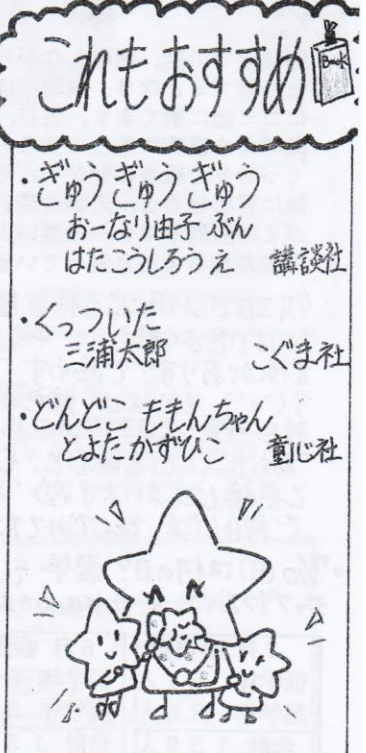 これもおすすめ
Book
・ぎゅうぎゅうぎゅう
おーなり由子 ぶん
はたこうしろう え 講談社
・くっついた
三浦太郎 こぐま社
・どんどこ ももんちゃん
とよたかずひこ 童心社